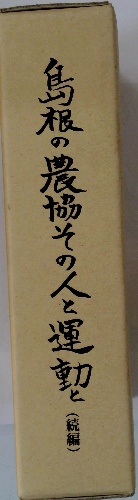 島根の農協その人と運動と(続編)